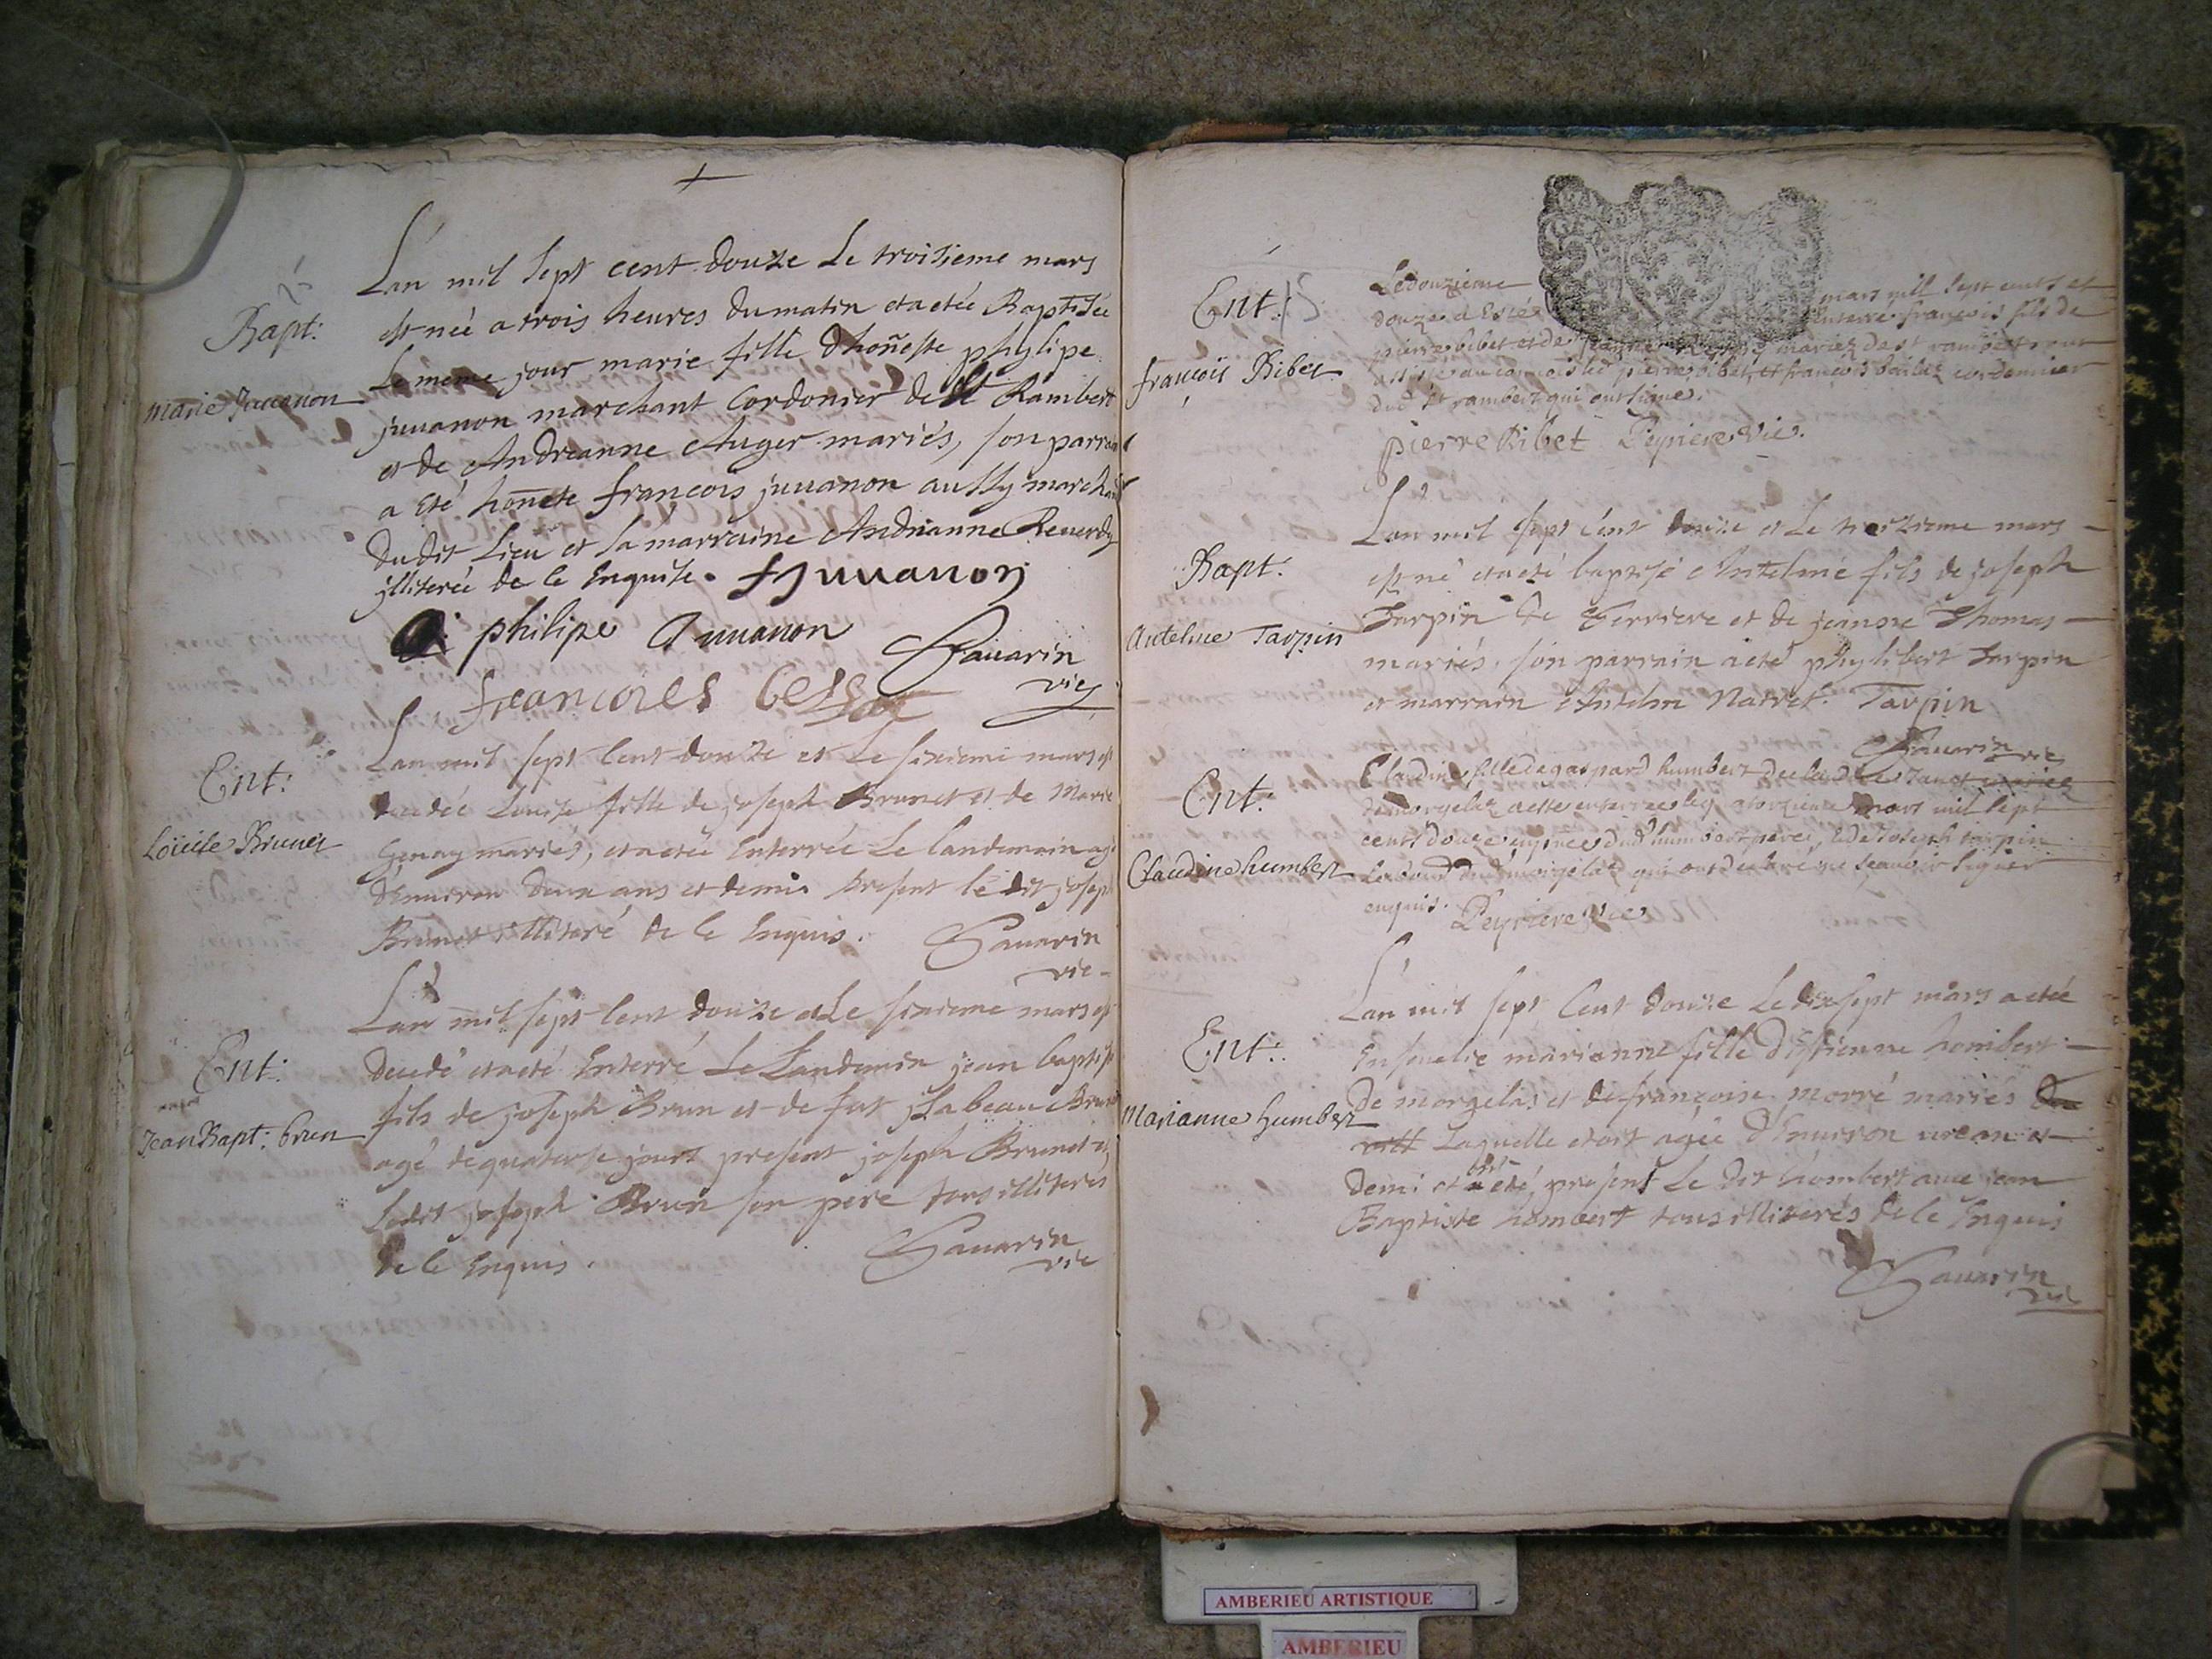 Bapt:
marie Juuanon
L'an mil sept cent douze le troisieme mars
est neé a trois heures du matin et a etée Baptisée
le meme jour marie fille d'honneste phylipe
juuanon marchant Cordonier de St Rambert
et de Andreanne Auger mariés, son parrain
a eté honete francois juuanon aussy marchant
du dit lieu et sa marraine Andrianne Reuerdy
jlliterée de ce enquise. f Juuanon
philipe Juuanon
Sauarin
vic
francoies
Ent:
Loüise Brunet
L'an mil sept cent douze et le sixieme mars est
decedée Louise fille de joseph Brunet et de Marie
Genay mariés, et a etée enterrée le landemain agée
d'enuiron deux ans et demis present le dit joseph
Brunet illiteré de ce enquis. Sauarin
vic
Ent:
Jean Bapt: brun
L'an mil sept cent douze et le sixieme mars est
decedé et a eté enterré le Landemain jean baptiste
fils de joseph Brun et de fut jsabeau Brunet
agé de quatorse jours present joseph Brunet et
ledit joseph Brun son pere tous illiterés
de ce enquis. Sauarin
vic
Ent:
françois Ribet
Le douzieme mars mil sept cents et
douze a esté enterré françois fils de
pierre ribet et de mariez de st rambert ont
assisté au conuoi led pierre ribet, et françois cordonnier
dud st rambert qui ont signe.
pierre Ribet Peyriere vic.
Bapt.
Antelme Tarpin
L'an mil sept cent douze et le treizieme mars
est né et a eté baptisé Antelme fils de joseph
Tarpin de Ferriere et de jeanne Thomas
mariés. son parrain a eté phylibert Tarpin
et marrain Natret. Tarpin
Sauarin vic
Ent:
Claudine humbert
Claudine fille de gaspard humbert
de morgelaz a esté enterree le quatorzieme mars mil sept
cents douze en presence dud humbert pere, et de Joseph tarpin
dud morgelaz qui ont declaré ne sçauoir signer
enquis. Peyriere vic
Ent:
Marianne humbert
L'an mil sept Cent douze le dix sept mars a etée
enseuelie marianne fille d'estienne hombert
de morgelas et de françoise morré mariés
laquelle etoit agée d'enuiron un an et
demi et a eté present le dit hombert auec jean
Baptiste hombert tous illiterés de ce enquis
Sauarin
vic
AMBERIEU ARTISTIQUE
AMBERIEU